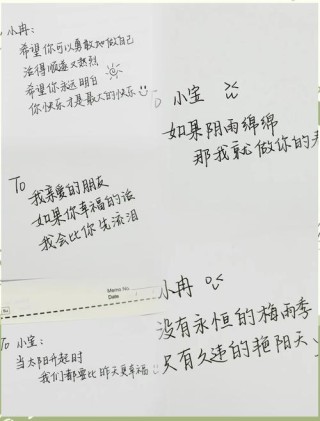 小冉：
希望你可以勇敢地做自己
活得顺遂又热烈
希望你永远明白
你快乐才是最大的快乐
小宝
如果阴雨绵绵
那我就做你的
To
我亲爱的朋友
如果你幸福的话
我会比你先流泪
Memo No.
Date
小冉
没有永恒的梅雨季
只有久违的艳阳天
To 小宝：
当太阳升起时
我们都要比昨天更幸福